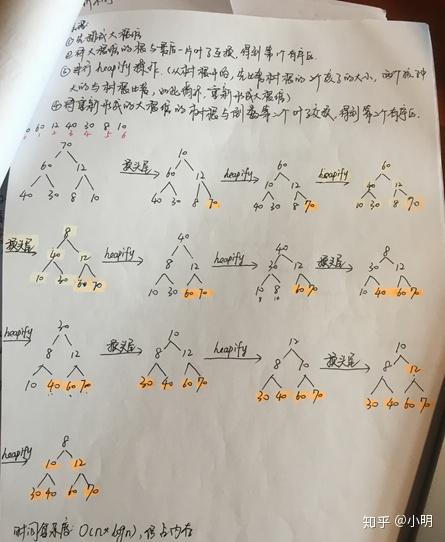 ①先建成大根堆
②将大根堆的根与最后一片叶子互换,得到第1个有序区
③进行heapify操作.(从树根开始,先比较树根的2个孩子的大小,两个孩子中
大的与树根比较,如此循环,重新形成大根堆)
④将重新形成的大根堆的树根与倒数第二个叶子交换,得到第二个有序区.
60 12 40 30 8 10
1 2 3 4 5 6
70
60 12
40 30 8 10
换头尾
10
60 12
40 30 8 70
heapify
60
10 12
40 30 8 70
heapify
60
40 12
10 30 8 70
换头尾
8
40 12
10 30 60 70
heapify
40
8 12
10 30 60 70
heapify
40
30 12
10 8 60 70
换头尾
8
30 12
10 40 60 70
heapify
30
8 12
10 40 60 70
换头尾
10
8 12
30 40 60 70
heapify
12
8 10
30 40 60 70
换头尾
10
8 12
30 40 60 70
heapify
8
10 12
30 40 60 70
时间复杂度: O(n*lgn),
占内存
知乎 @小明